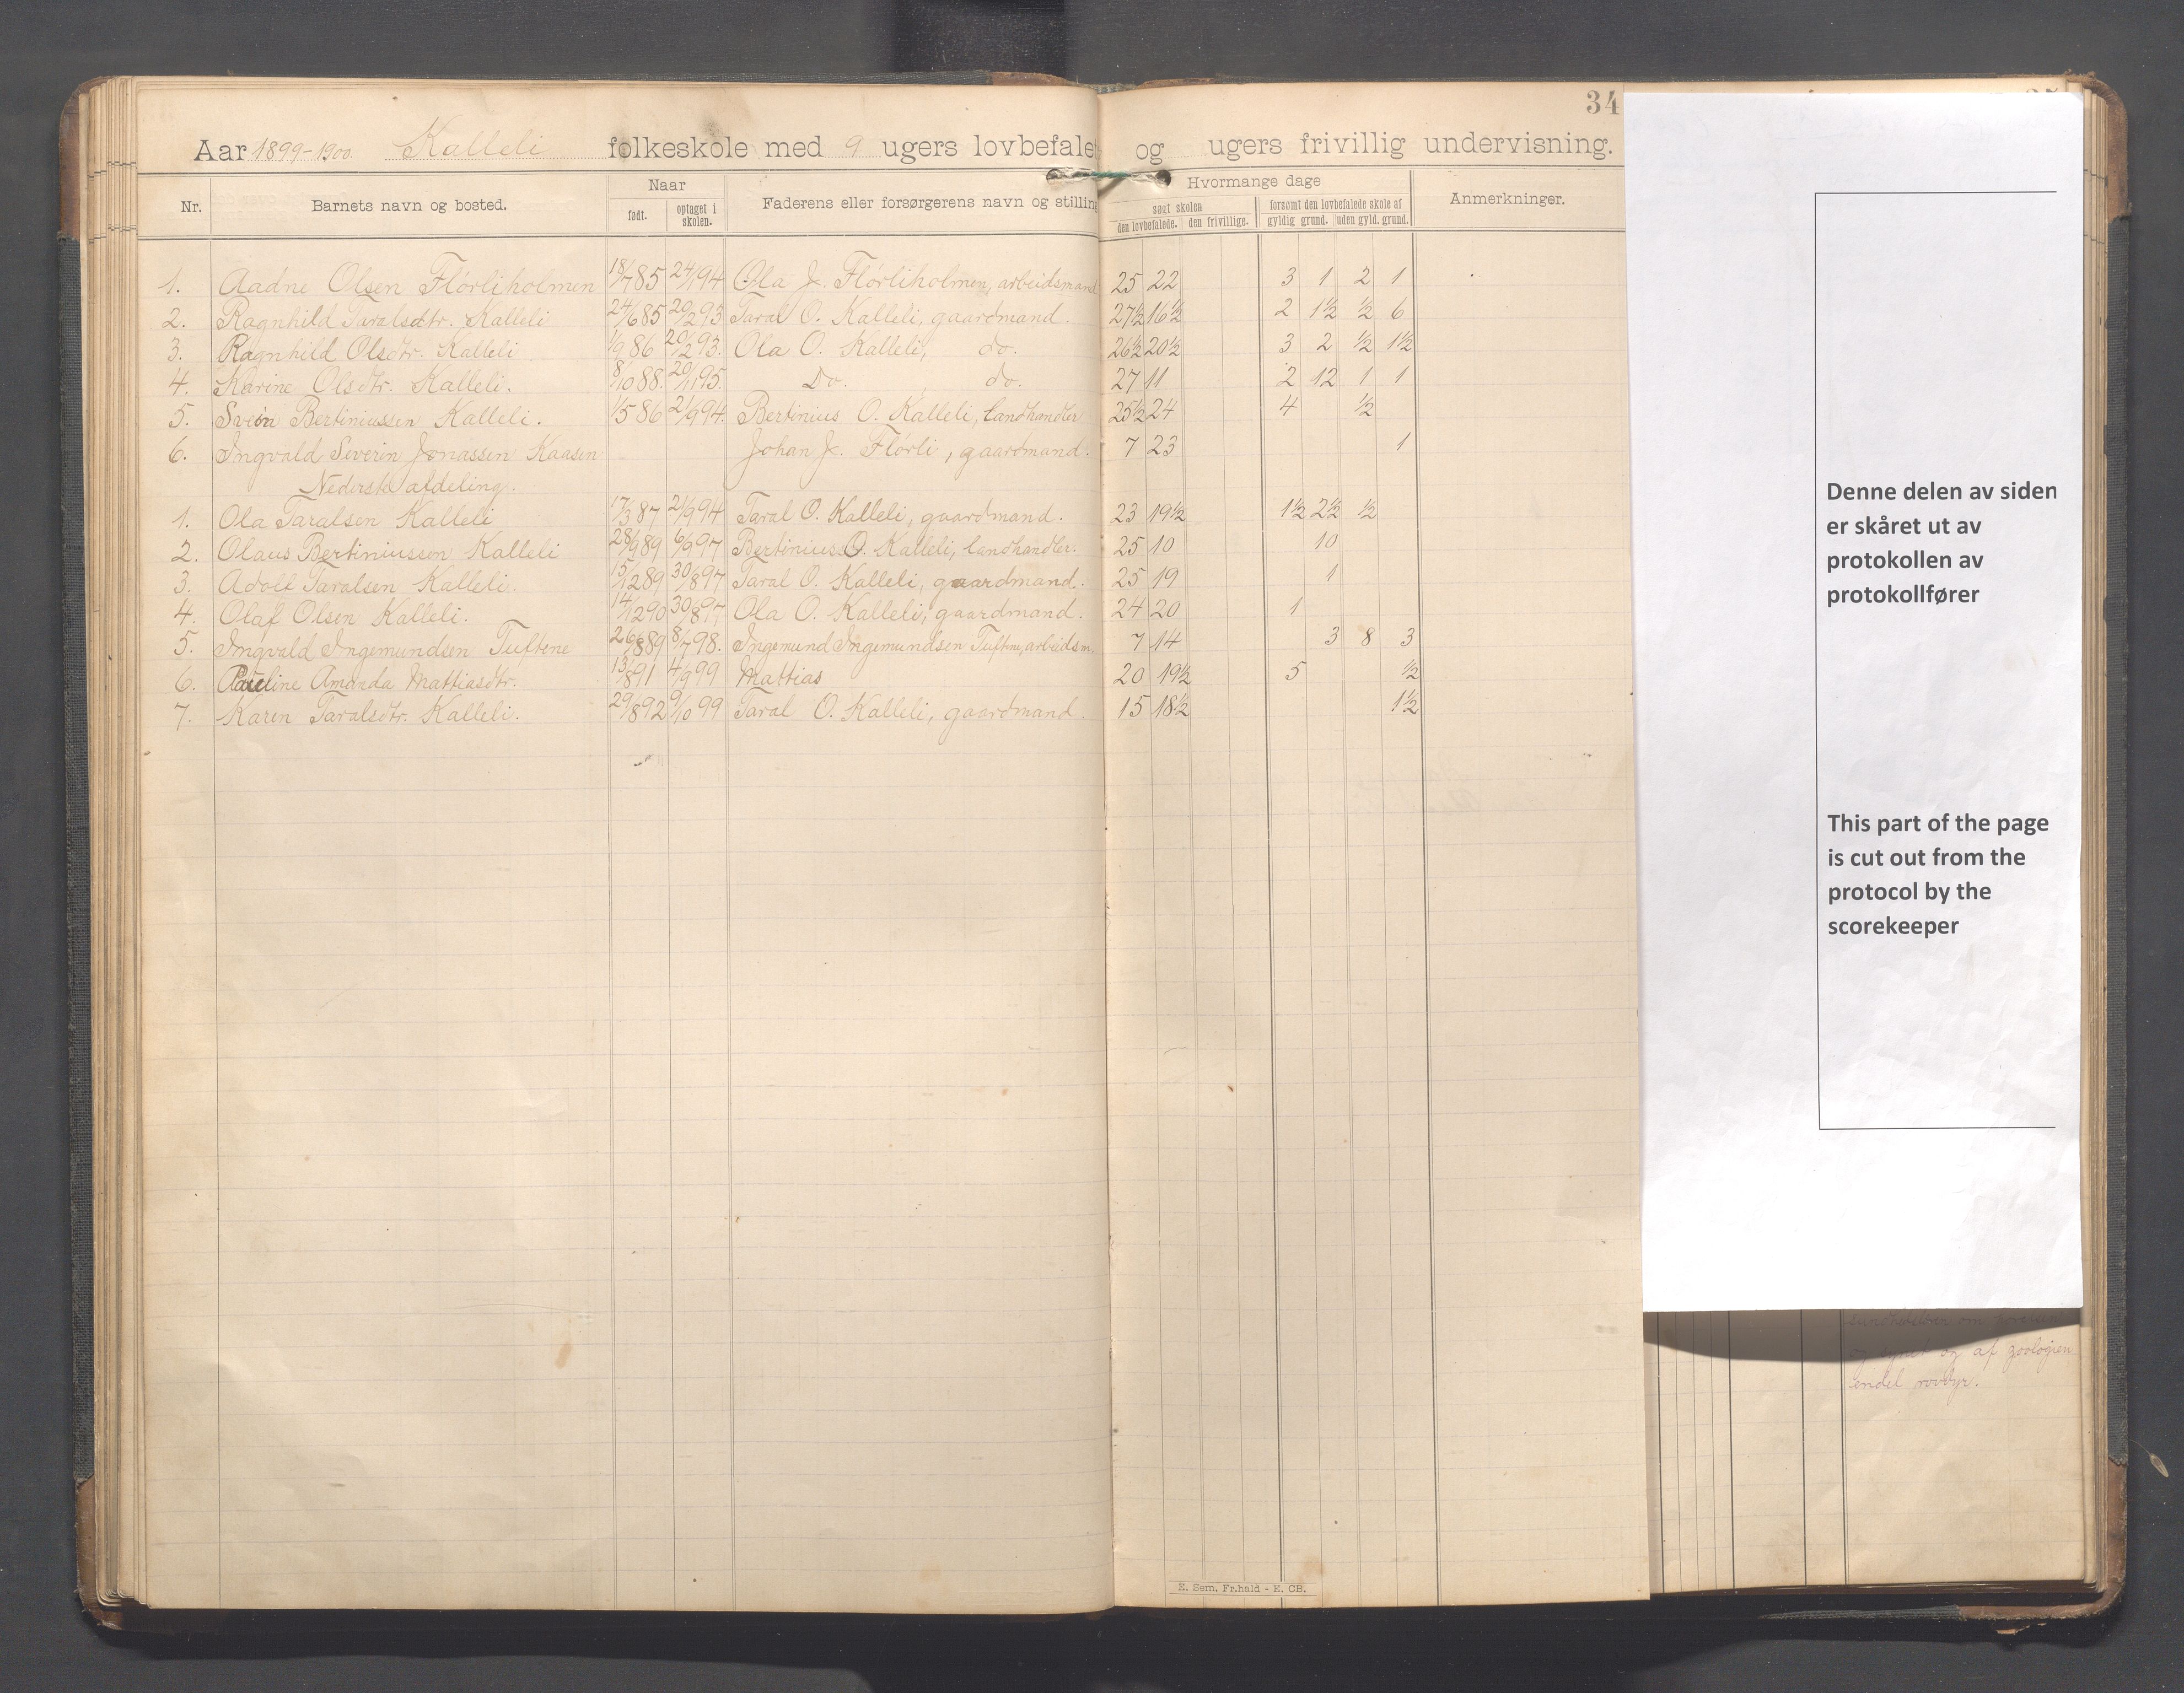 34
Aar 1899-1900. Kalleli folkeskole med 9 ugers lovbefalet og ugers frivillig undervisning.
Nr. Barnets navn og bosted. Naar Faderens eller forsørgerens navn og stilling Hvormange dage Anmerkninger.
født. optaget i skolen. søgt skolen forsømt den lovbefalede skole af
den lovbefalede. den frivillige. gyldig grund. uden gyld. grund.
1. Aadne Olsen Flørliholmen 18/7 85 24/1 94 Ola J. Flørliholmen, arbeidsmand 25 22 3 1 2 1
2. Ragnhild Taralsdtr. Kalleli 24/6 85 20/2 93 Taral O. Kalleli, gaardmand. 27½ 16½ 2 1½ ½ 6
3. Ragnhild Olsdtr. Kalleli 1/9 86 20/2 93. Ola O. Kalleli, do. 26½ 20½ 3 2 ½ 1½
4. Karine Olsdtr. Kalleli. 8/10 88. 20/11 95. Do. do. 27 11 2 12 1 1
5. Svein Bertiniussen Kalleli. 1/5 86 21/9 94. Bertinius O. Kalleli, landhandler 25½ 24 4 ½
6. Ingvald Severin Jonassen Kaasen Johan J. Flørli, gaardmand. 7 23 1
Nederste afdeling.
1. Ola Taralsen Kalleli 17/3 87 21/9 94 Taral O. Kalleli, gaardmand. 23 19½ 1½ 2½ ½
2. Olaus Bertiniussen Kalleli 28/9 89 6/9 97 Bertinius O. Kalleli, landhandler. 25 10 10
3. Adolf Taralsen Kalleli. 15/12 89 30/8 97 Taral O. Kalleli, gaardmand. 25 19 1
4. Olaf Olsen Kalleli. 14/12 90 30/8 97 Ola O. Kalleli, gaardmand. 24 20 1
5. Ingvald Ingemundsen Tuftene 26/8 89 8/7 98. Ingemund Ingemundsen Tuftene, arbeidsm. 7 14 3 8 3
6. Pauline Amanda Mattiasdtr. 13/8 91 4/9 99 Mattias 20 19½ 5 ½
7. Karen Taralsdtr. Kalleli. 29/8 92 9/10 99 Taral O. Kalleli, gaardmand. 15 18½ 1½
E. Sem, Fr.hald - E. CB.
Denne delen av siden
er skåret ut av
protokollen av
protokollfører
This part of the page
is cut out from the
protocol by the
scorekeeper
om
og af zoologien
endel rovdyr.